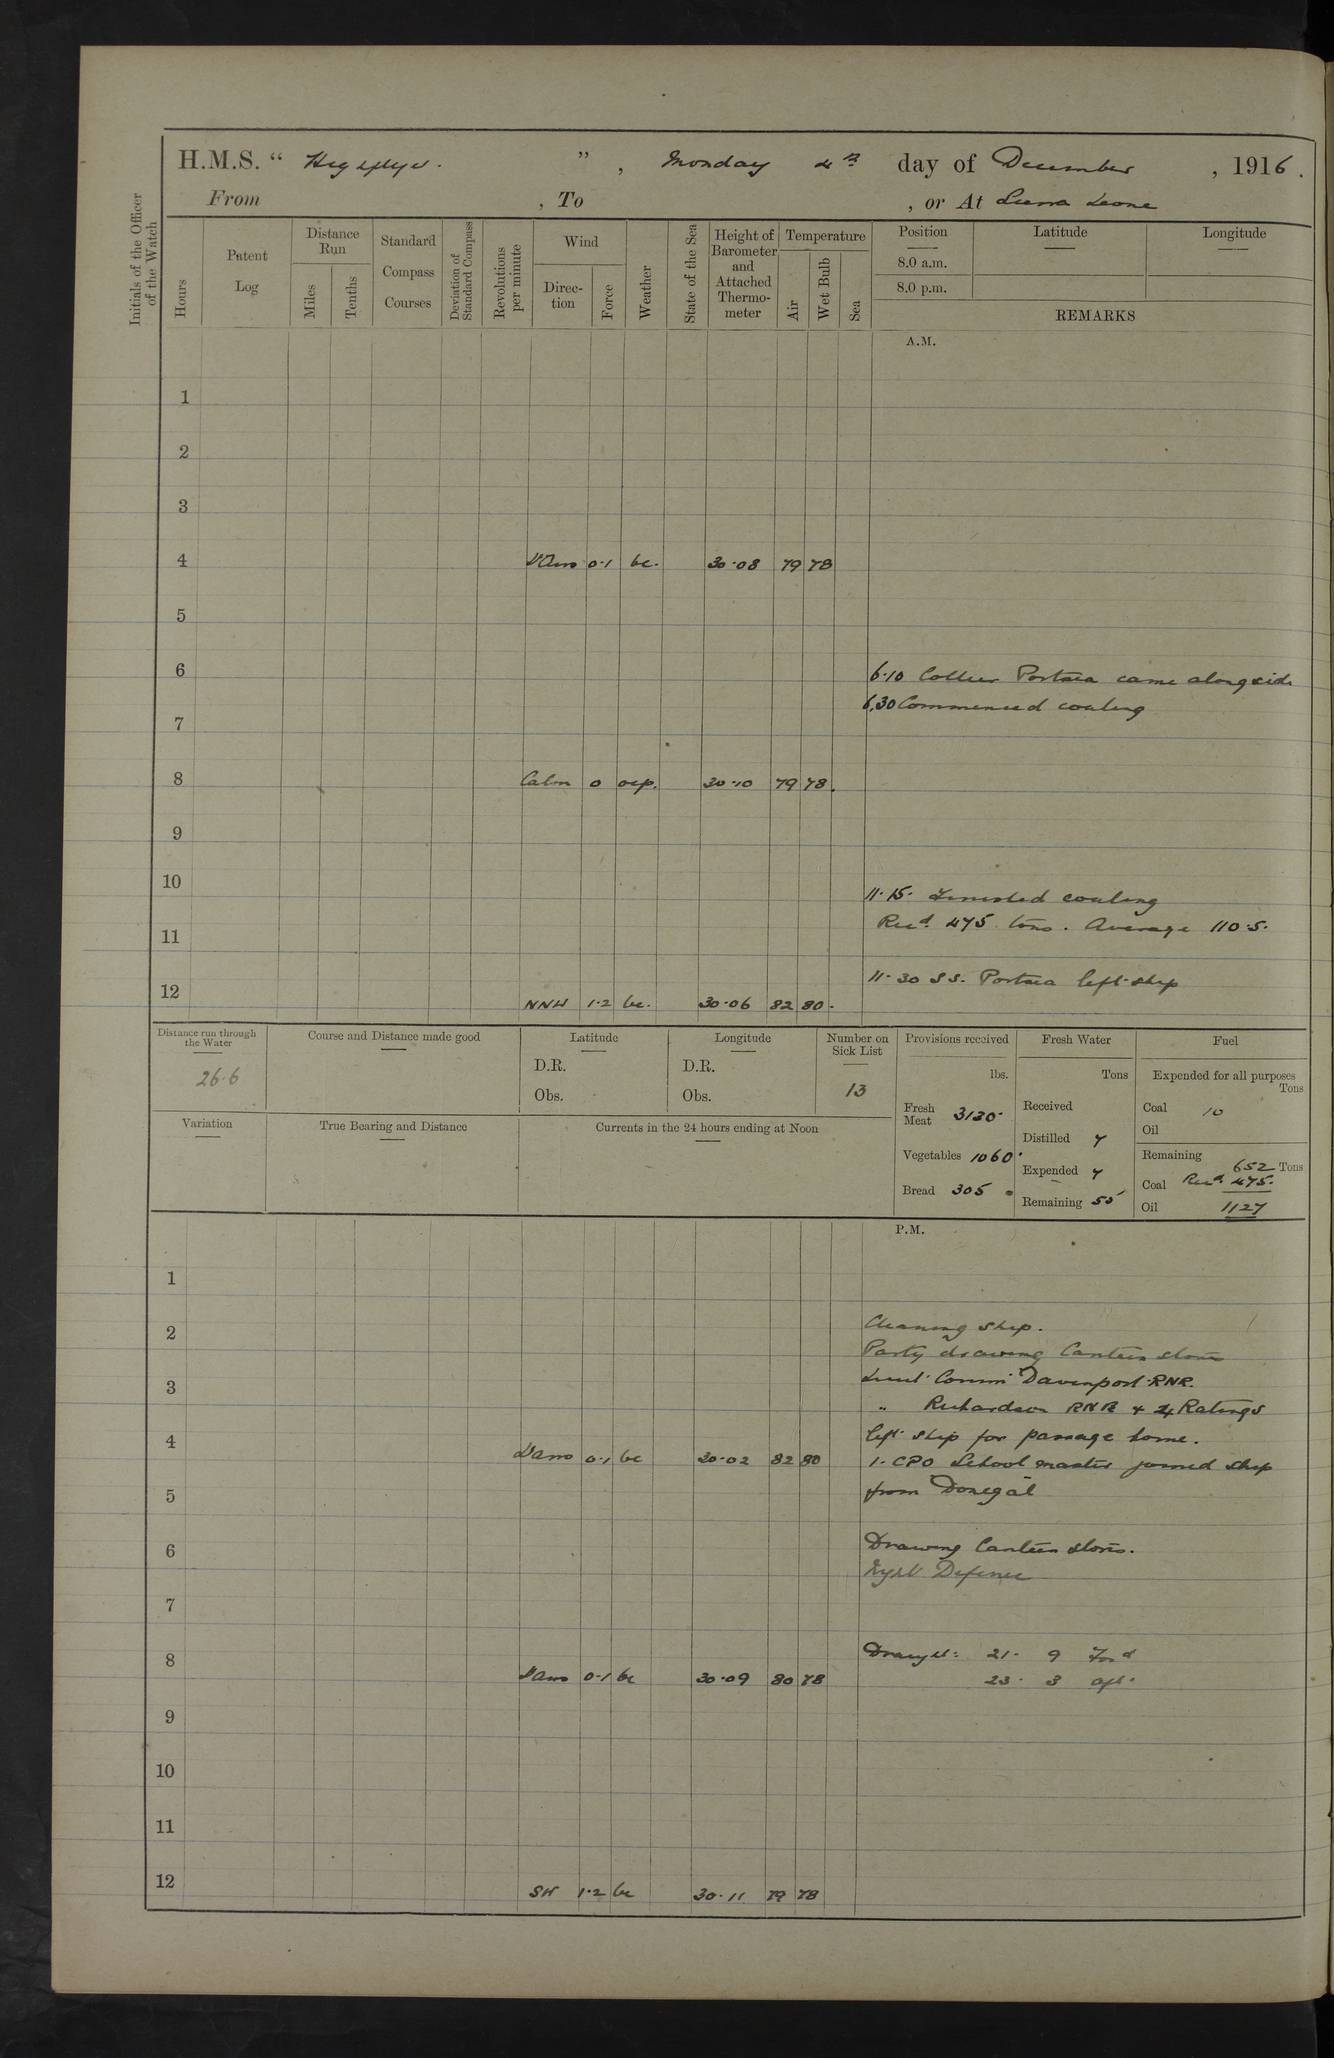 H.M.S. “ Highflyer. ” , Monday 4th day of December , 1916.
From , To , or At Sierra Leone
Initials of the Officer of the Watch
Hours
Patent Log
Distance Run
Miles
Tenths
Standard Compass Courses
Deviation of Standard Compass
Revolutions per minute
Wind
Direc- tion
Force
Weather
State of the Sea
Height of Barometer and Attached Thermo- meter
Temperature
Air
Wet Bulb
Sea
Position Latitude Longitude
8.0 a.m.
8.0 p.m.
REMARKS
A.M.
1
2
3
4 Vars 0·1 bc. 30·08 79 78
5
6 6·10 Collier Portsea came alongside
6.30 Commenced coaling
7
8 Calm 0 ocp. 30·10 79 78.
9
10 11·15· Finished coaling
11 Recd. 475 tons. Average 110·5.
11·30 SS. Portsea left ship
12 NNW 1·2 bc. 30·06 82 80·
Distance run through the Water
26·6
Course and Distance made good
Latitude
D.R.
Obs.
Longitude
D.R.
Obs.
Number on Sick List
13
Variation
True Bearing and Distance
Currents in the 24 hours ending at Noon
Provisions received
lbs.
Fresh Meat 3130·
Vegetables 1060·
Bread 305
Fresh Water
Tons
Received
Distilled 7
Expended 7
Remaining 55
Fuel
Expended for all purposes
Tons
Coal 10
Oil
Remaining
652 Tons
Coal Recd. 475.
Oil 1127
P.M.
1
2 Cleaning ship.
Party drawing Canteen stores
3 Lieut Comm Davenport RNR.
„ Richardson RNR & 24 Ratings
4 left ship for passage home.
Vars 0·1 bc 30·02 82 80 1·CPO School master joined ship
5 from Donegal
6 Drawing Canteen stores.
Night Defence
7
8 Draught: 21· 9 Ford
Vars 0·1 bc 30·09 80 78 23· 3 aft·
9
10
11
12 SW 1·2 bc 30·11 79 78